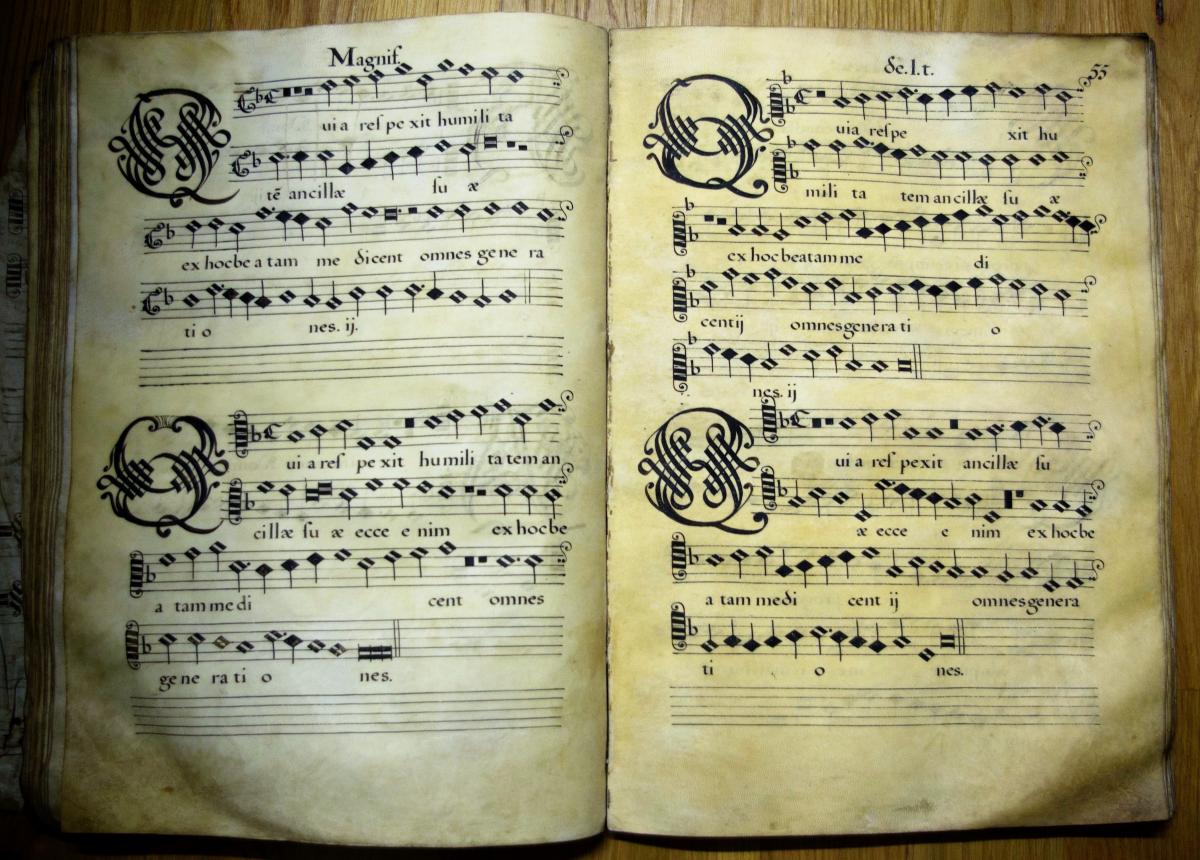 Magnif.
Quia respexit humilita
tē ancillæ suæ
ex hoc beatam me dicent omnes genera
tiones. ij.
Quia respexit humilitatem an
cillæ suæ ecce enim ex hoc be
atam me dicent omnes
generationes.
de.I.t. 55
Quia respexit hu
militatem ancillæ suæ
ex hoc beatam me di
cent ij omnes generatio
nes. ij
Quia respexit ancillæ su
æ ecce enim ex hoc be
atam me dicent ij omnes genera
tiones.